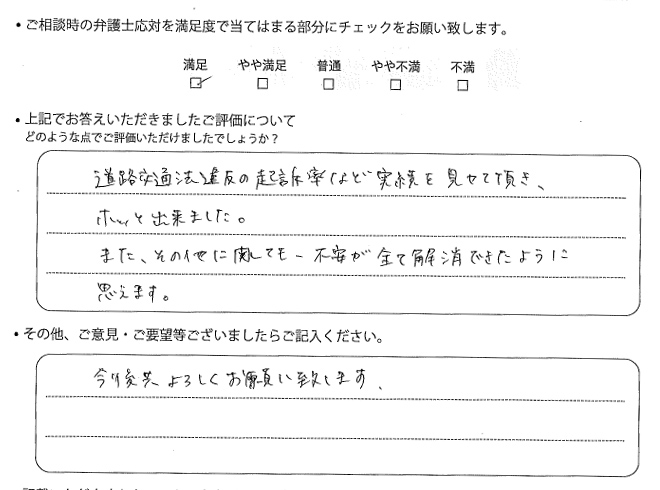 ・ご相談時の弁護士応対を満足度で当てはまる部分にチェックをお願い致します。
満足 やや満足 普通 やや不満 不満
・上記でお答えいただきましたご評価について
どのような点でご評価いただけましたでしょうか？
道路交通法違反の起訴率など実績を見せて頂き、
ホッと出来ました。
また、その他に関しても一不安が全て解消できたように
思えます。
・その他、ご意見・ご要望等ございましたらご記入ください。
今後共よろしくお願い致します、